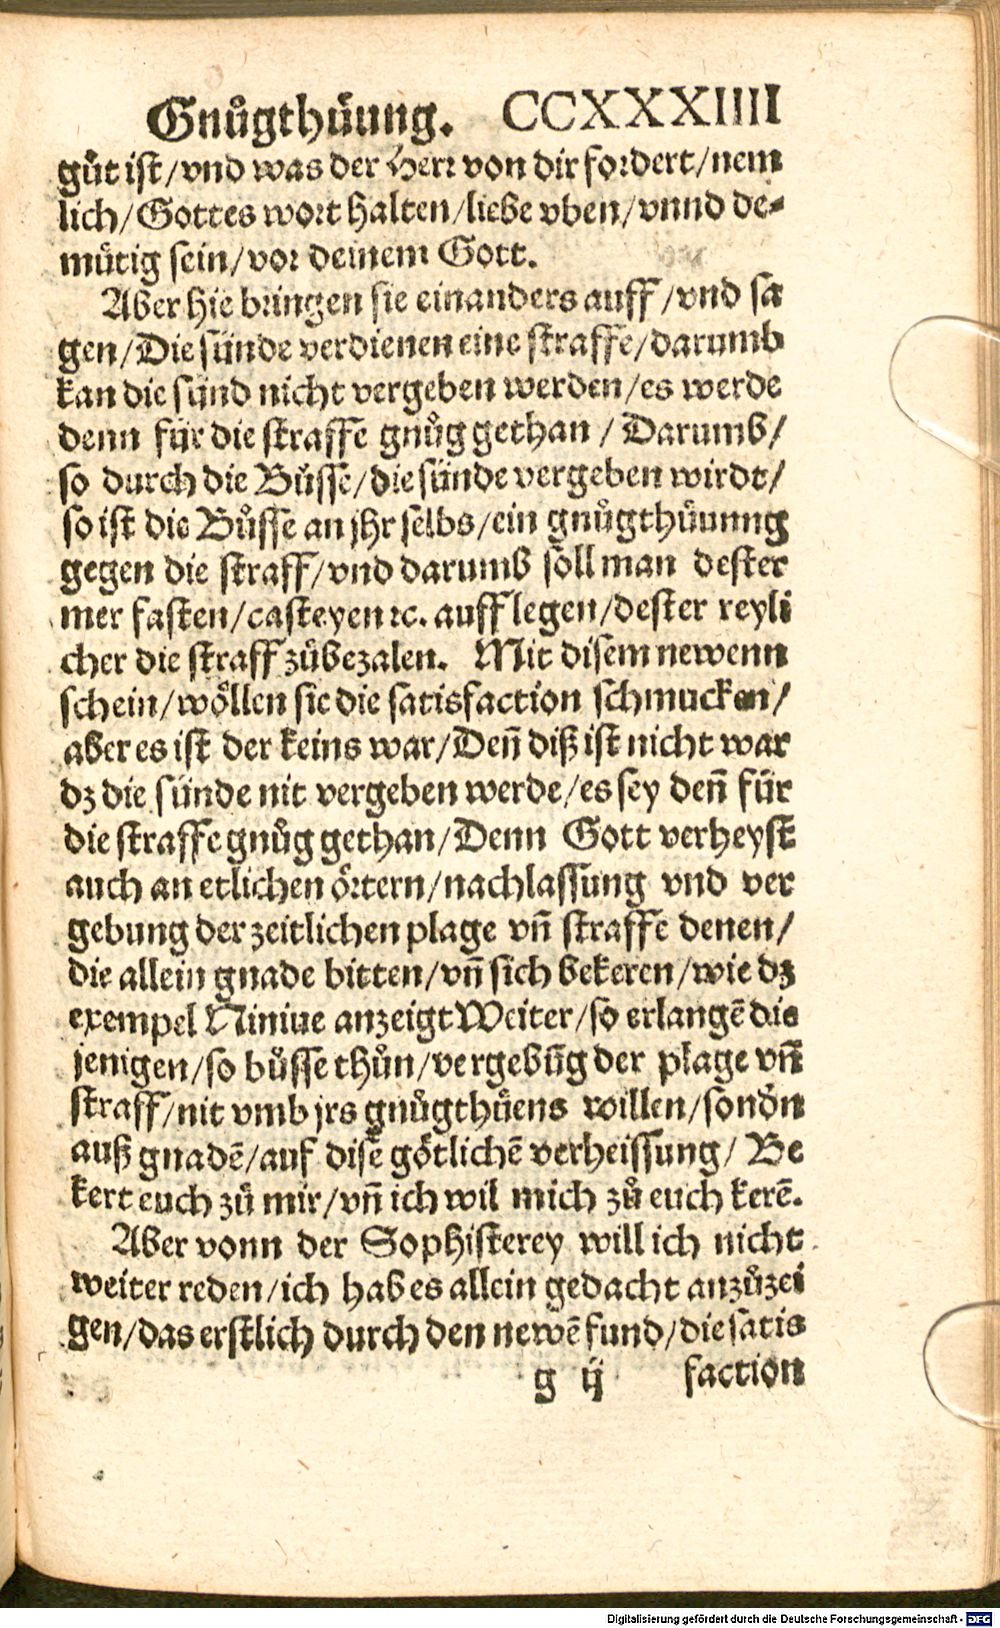 Gnůgthůung. CCXXXIIII
gůt ist/vnd was der Herr von dir fordert/nem
lich/Gottes wort halten/liebe vben/vnnd de-
mütig sein/vor deinem Gott.
Aber hie bringen sie ein anders auff/vnd sa
gen/Die sünde verdienen eine straffe/darumb
kan die sünd nicht vergeben werden/es werde
denn für die straffe gnůg gethan/Darumb/
so durch die Bůsse/die sünde vergeben wirdt/
so ist die Bůsse an jhr selbs/ein gnůgthůunng
gegen die straff/vnd darumb soll man dester
mer fasten/casteyen ꝛc. auff legen/dester reyli
cher die straff zůbezalen. Mit disem newenn
schein/wöllen sie die satisfaction schmucken/
aber es ist der keins war/Deñ diß ist nicht war
dz die sünde nit vergeben werde/es sey deñ für
die straffe gnůg gethan/Denn Gott verheyst
auch an etlichen örtern/nachlassung vnd ver
gebung der zeitlichen plage vñ straffe denen/
die allein gnade bitten/vñ sich bekeren/wie dz
exempel Niniue anzeigt Weiter/so erlangē die
jenigen/so bůsse thůn/vergebūg der plage vñ
straff/nit vmb jrs gnůgthůens willen/sondn̄
auß gnadē/auf disē götlichē verheissung/Be
kert euch zů mir/vñ ich wil mich zů euch kerē.
Aber vonn der Sophisterey will ich nicht
weiter reden/ich hab es allein gedacht anzůzei
gen/das erstlich durch den newē fund/die satis
g ij faction
Digitalisierung gefördert durch die Deutsche Forschungsgemeinschaft - DFG